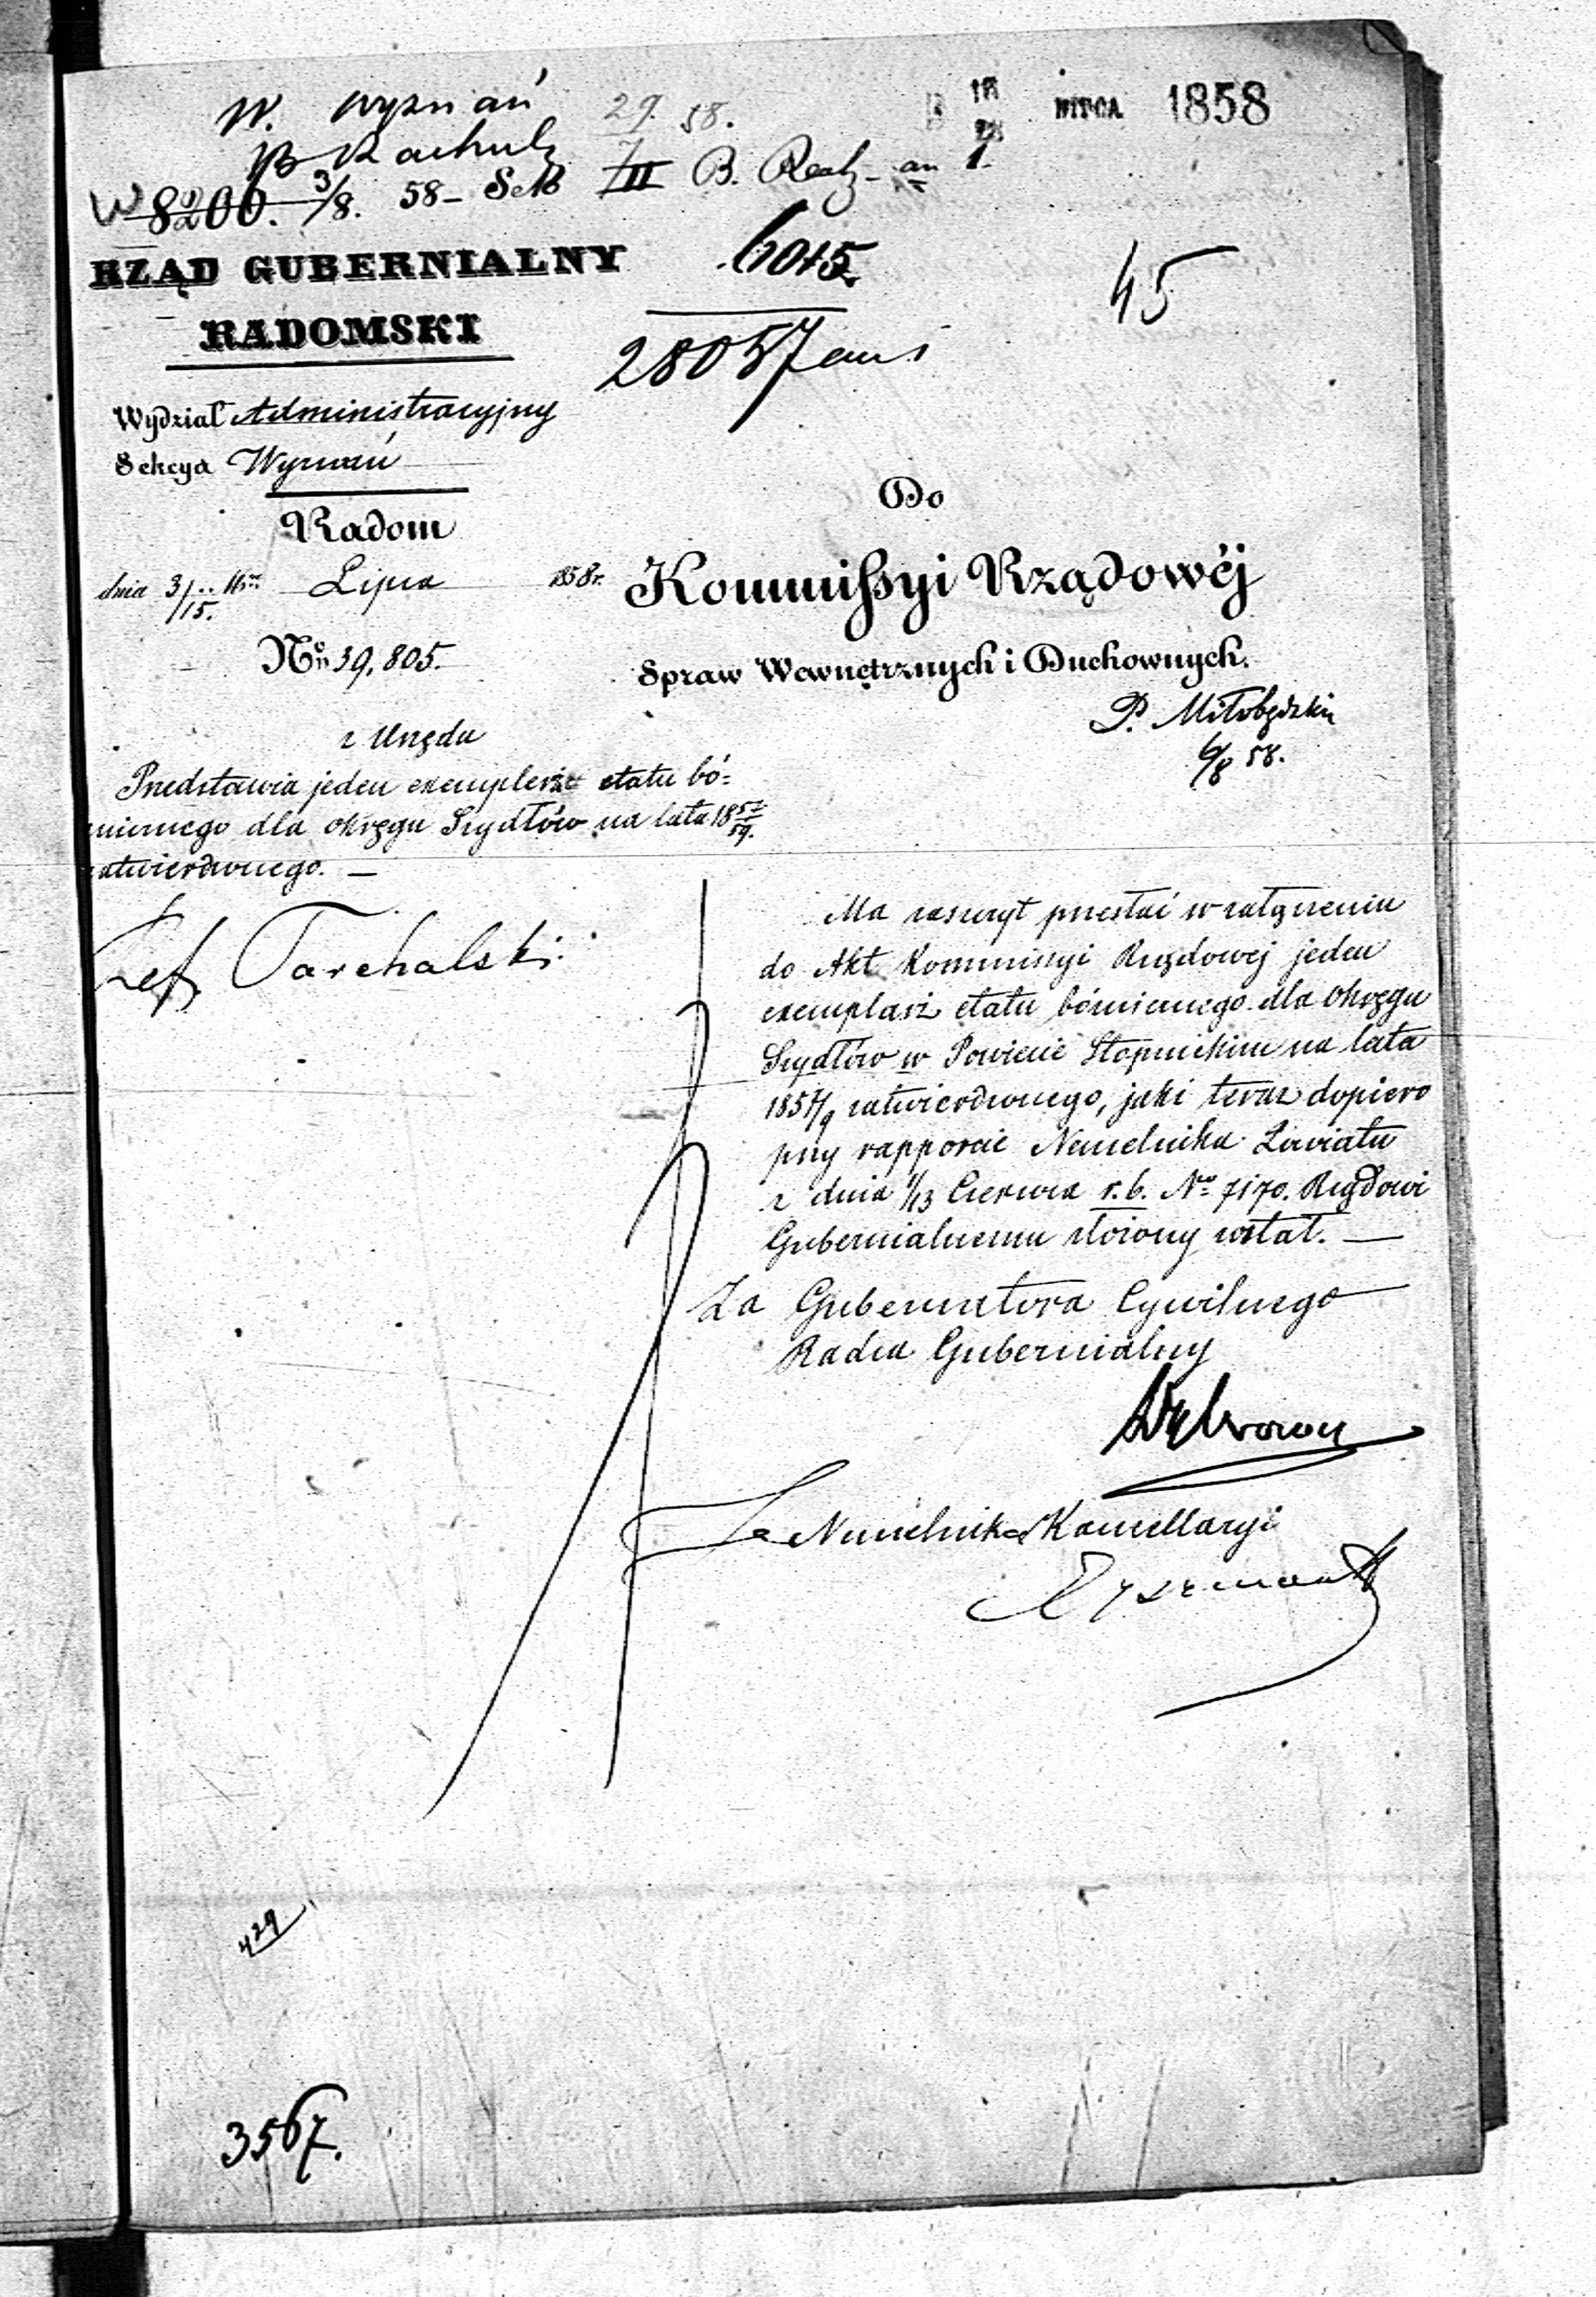 W. Wyznań
29. 58.
1858
8200. 3/8. 58 –
III B.
RZĄD GUBERNIALNY
RADOMSKI
6015
28057
45
Wydział Administracyjny
Sekcya Wyznań
Radom
dnia 3/15. Lipca 1858 r.
No 39,805.
Do
Kommissyi Rządowéj
Spraw Wewnętrznych i Duchownych.
P. Miłobędzki
6/8 58.
z Urzędu
Przedstawia jeden exemplarz etatu bó-
żniczego dla okręgu Szydłów na lata 1857/59.
zatwierdzonego. —
Ref. Tarchalski
Ma zaszczyt przesłać w załączeniu
do Akt Kommissyi Rządowej jeden
exemplarz etatu bóżniczego dla Okręgu
Szydłów w Powiecie Stopnickim na lata
1857/9 zatwierdzonego, jaki teraz dopiero
przy rapporcie Naczelnika Powiatu
z dnia 1/13 Czerwca r. b. No 7170. Rządowi
Gubernialnemu złożony został. —
Za Gubernatora Cywilnego
Radca Gubernialny
Za Naczelnika Kancellaryi
429
3567.